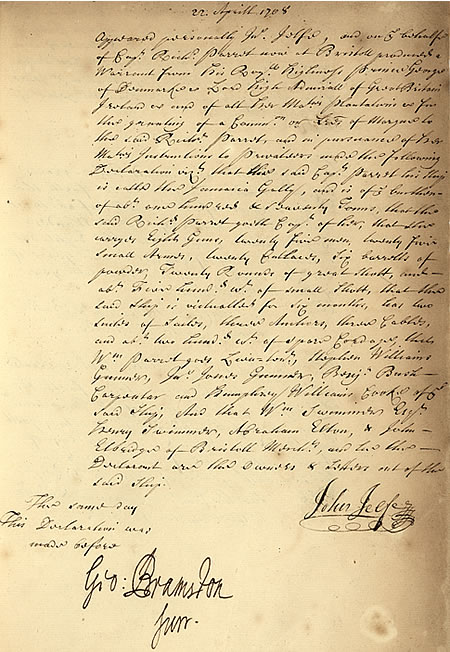 22. Aprill 1708
Appeared personally Jn.o Jelfe, and on ye behalfe
of Capt. Richd. Parret now at Bristoll produced a
Warrant from his Royll. Highness Prince George
of Denmark &c Lord high Admirall of Great Britain
Ireland &c and of all Her Mats. Plantations &c for
the granting of a Comm.n or Lres of Marque to
the said Richd. Parret, and in pursuance of Her
Mats. Instructions to Privateers made the following
Declaration vizt. that the said Capt. Parret his ship
is called the Jamaica Gally, and is of ye burthen
of abt. one hundred & seaventy Tonns, that the
said Richd. Parret goeth Capt. of her, that she
carryes Eight Guns, twenty five men, twenty five
small Armes, twenty Cutlaces, Six barrells of
powder, Twenty Rounds of great shott, and
abt. Five hund.d wt. of small shott, that the
said ship is victualled for six months, has two
suites of Sailes, three Anchors, three Cables,
and abt. two hund.d wt. of spare Cordage, that
Wm. Parret goes Lieu-ten.t, Stephen Williams
Gunner, Jn.o Jones Gunner, Benj.n Bush
Carpenter and Humphry Williams Cooke of ye
said ship, And that Wm. Swymmer Esqr.
Henry Swimmer, Abraham Elton, & John
Elbridge of Bristoll Merchts., and he the
Declarant are the Owners & Setters out of the
said ship.
John Jelfe
The same day
This Declaration was
made before
Geo: Bramston
Surr.